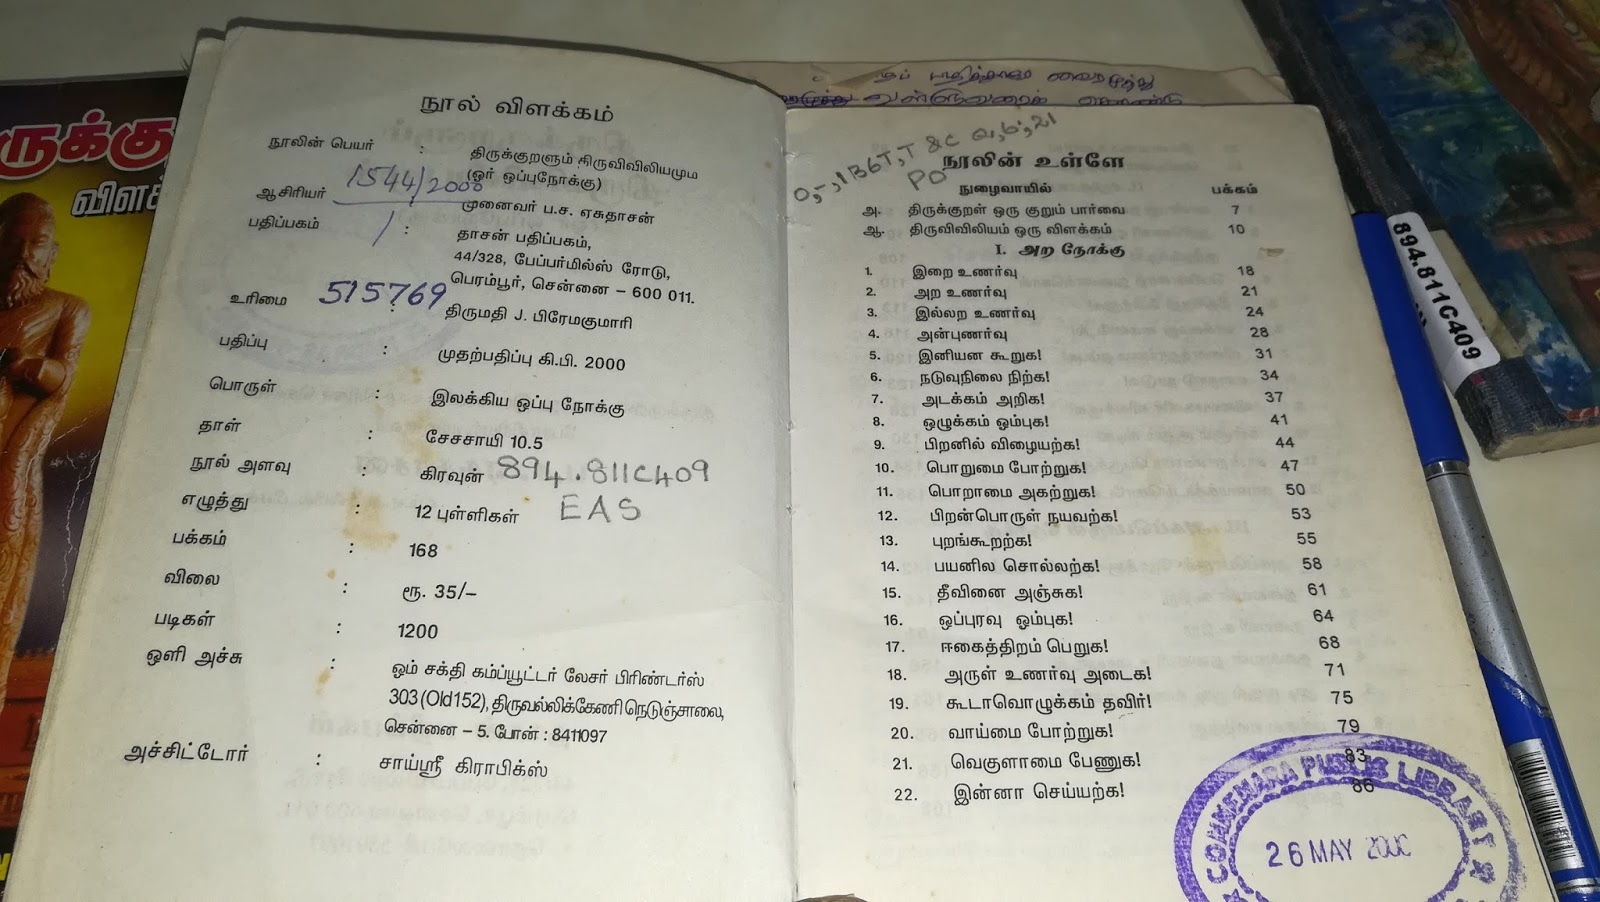 ருக்கு
விளக்
நூல் விளக்கம்
நூலின் பெயர் : திருக்குறளும் திருவிவிலியமும்
(ஓர் ஒப்புநோக்கு)
1544/2000
ஆசிரியர் : முனைவர் ப.ச. ஏசுதாசன்
பதிப்பகம் : தாசன் பதிப்பகம்,
44/328, பேப்பர்மில்ஸ் ரோடு,
பெரம்பூர், சென்னை – 600 011.
515769
உரிமை : திருமதி J. பிரேமகுமாரி
பதிப்பு : முதற்பதிப்பு கி.பி. 2000
பொருள் : இலக்கிய ஒப்பு நோக்கு
தாள் : சேசசாயி 10.5
நூல் அளவு : கிரவுன் 894.811C409
எழுத்து : 12 புள்ளிகள் EAS
பக்கம் : 168
விலை : ரூ. 35/–
படிகள் : 1200
ஒளி அச்சு : ஓம் சக்தி கம்ப்யூட்டர் லேசர் பிரிண்டர்ஸ்
303 (Old 152), திருவல்லிக்கேணி நெடுஞ்சாலை,
சென்னை – 5. போன் : 8411097
அச்சிட்டோர் : சாய்ஸ்ரீ கிராபிக்ஸ்
நூலின் உள்ளே
PO
நுழைவாயில் பக்கம்
அ. திருக்குறள் ஒரு குறும் பார்வை 7
ஆ. திருவிவிலியம் ஒரு விளக்கம் 10
I. அற நோக்கு
1. இறை உணர்வு 18
2. அற உணர்வு 21
3. இல்லற உணர்வு 24
4. அன்புணர்வு 28
5. இனியன கூறுக! 31
6. நடுவுநிலை நிற்க! 34
7. அடக்கம் அறிக! 37
8. ஒழுக்கம் ஓம்புக! 41
9. பிறனில் விழையற்க! 44
10. பொறுமை போற்றுக! 47
11. பொறாமை அகற்றுக! 50
12. பிறன்பொருள் நயவற்க! 53
13. புறங்கூறற்க! 55
14. பயனில சொல்லற்க! 58
15. தீவினை அஞ்சுக! 61
16. ஒப்புரவு ஓம்புக! 64
17. ஈகைத்திறம் பெறுக! 68
18. அருள் உணர்வு அடைக! 71
19. கூடாவொழுக்கம் தவிர்! 75
20. வாய்மை போற்றுக! 79
21. வெகுளாமை பேணுக! 83
22. இன்னா செய்யற்க! 86
CONNEMARA PUBLIC LIBRARY
26 MAY 2000
894.811C409